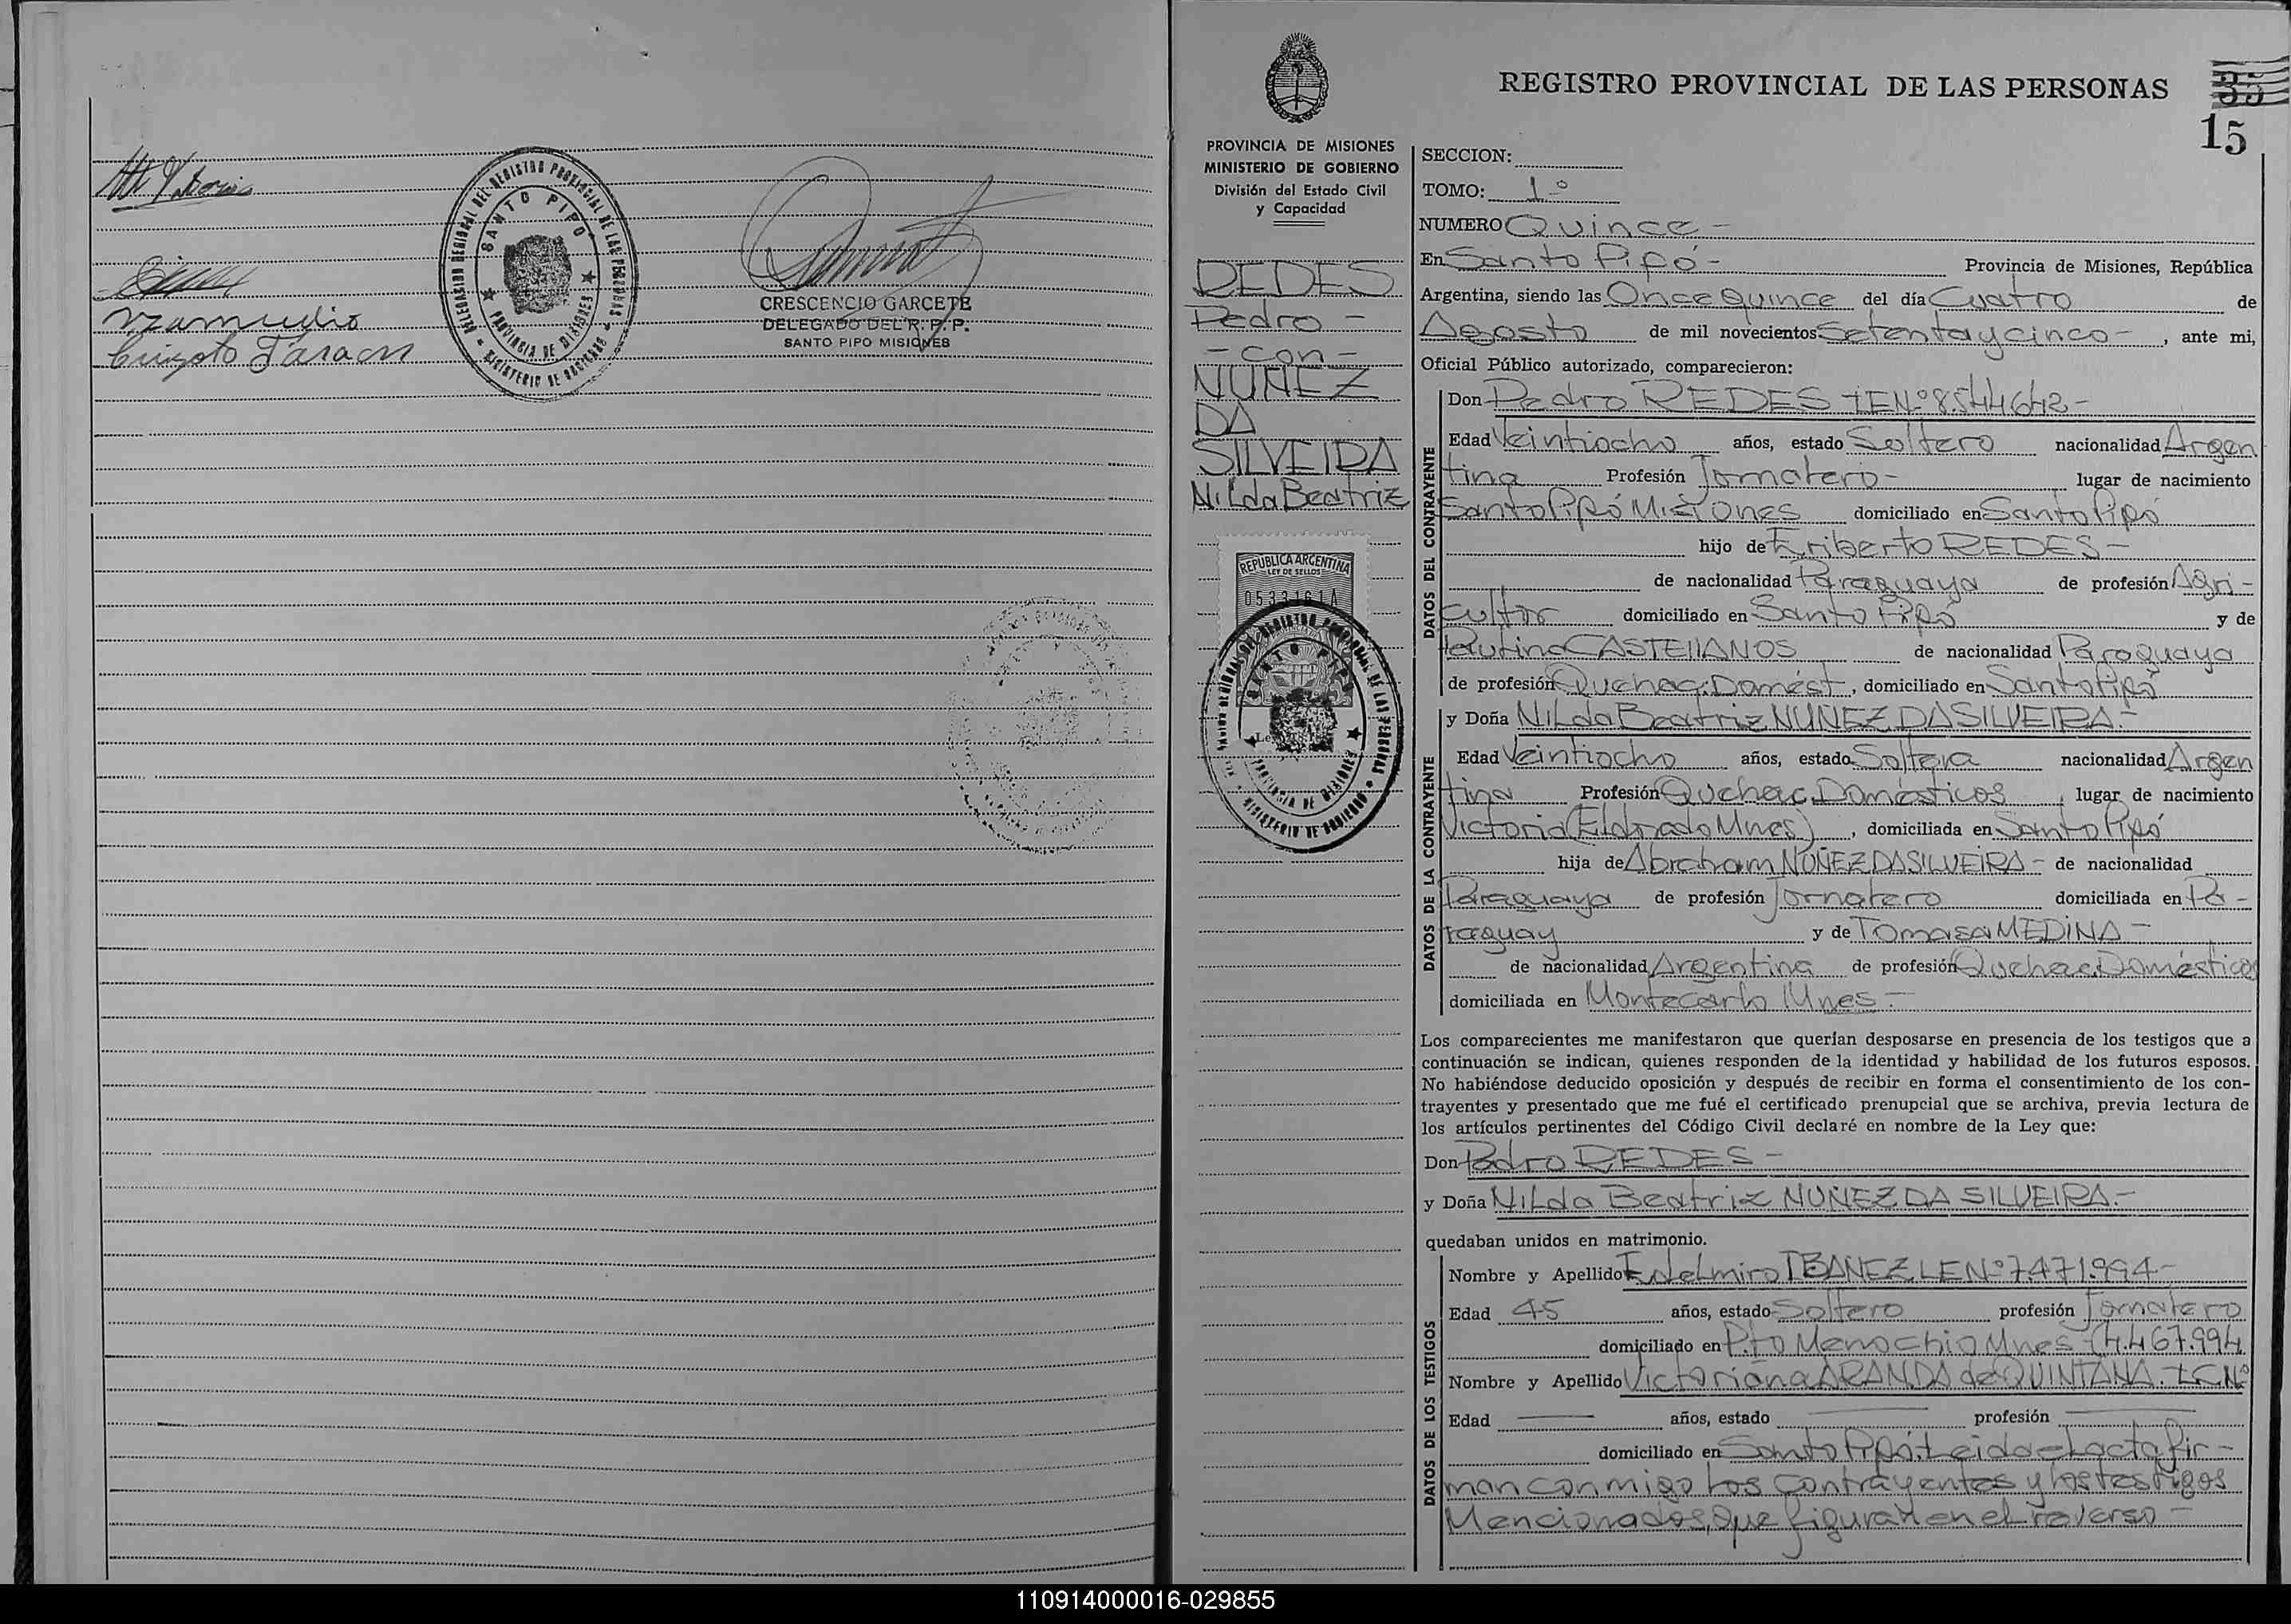 DELEGACION REGIONAL DEL REGISTRO PROVINCIAL DE LAS PERSONAS
SANTO PIPO
PROVINCIA DE MISIONES
MINISTERIO DE GOBIERNO
CRESCENCIO GARCETE
DELEGADO DEL R. P. P.
SANTO PIPO MISIONES
REGISTRO PROVINCIAL DE LAS PERSONAS
35
15
PROVINCIA DE MISIONES
MINISTERIO DE GOBIERNO
División del Estado Civil
y Capacidad
REDES
Pedro -
- con -
NUÑEZ
DA
SILVEIRA
Nilda Beatriz
REPUBLICA ARGENTINA
LEY DE SELLOS
SANTO PIPO
PROVINCIA DE MISIONES
MINISTERIO DE GOBIERNO
SECCION:
TOMO: 1º
NUMERO Quince -
En Santo Pipó - Provincia de Misiones, República
Argentina, siendo las Once Quince del día Cuatro de
Agosto de mil novecientos Setenta y cinco - , ante mi,
Oficial Público autorizado, comparecieron:
DATOS DEL CONTRAYENTE
Don Pedro REDES LE Nº 8.544.642 -
Edad Veintiocho años, estado Soltero nacionalidad Argen
tina Profesión Jornalero - lugar de nacimiento
Santo Pipó Misiones domiciliado en Santo Pipó
hijo de Eriberto REDES -
de nacionalidad Paraguaya de profesión Agri -
cultor domiciliado en Santo Pipó y de
Paulina CASTELLANOS de nacionalidad Paraguaya
de profesión Quehac. Domést , domiciliado en Santo Pipó
DATOS DE LA CONTRAYENTE
y Doña Nilda Beatriz NUÑEZ DA SILVEIRA.-
Edad Veintiocho años, estado Soltera nacionalidad Argen
tina Profesión Quehac. Domésticos , lugar de nacimiento
Victoria (Eldorado Mnes) , domiciliada en Santo Pipó
hija de Abraham NUÑEZ DA SILVEIRA - de nacionalidad
Paraguaya de profesión Jornalero domiciliada en Pa -
raguay y de Tomasa MEDINA -
de nacionalidad Argentina de profesión Quehac. Domésticos
domiciliada en Montecarlo Mnes -
Los comparecientes me manifestaron que querían desposarse en presencia de los testigos que a
continuación se indican, quienes responden de la identidad y habilidad de los futuros esposos.
No habiéndose deducido oposición y después de recibir en forma el consentimiento de los con-
trayentes y presentado que me fué el certificado prenupcial que se archiva, previa lectura de
los artículos pertinentes del Código Civil declaré en nombre de la Ley que:
Don Pedro REDES -
y Doña Nilda Beatriz NUÑEZ DA SILVEIRA.-
quedaban unidos en matrimonio.
DATOS DE LOS TESTIGOS
Nombre y Apellido Edelmiro IBAÑEZ LE Nº 7.471.994 -
Edad 45 años, estado Soltero profesión Jornalero
domiciliado en Pto Menochio Mnes (4.467.994
Nombre y Apellido Victoriana ARANDA de QUINTANA. LC Nº
Edad años, estado profesión
domiciliado en Santo Pipó. Leida el acta fir -
man conmigo los contrayentes y los testigos
Mencionados, que figuran en el reverso -
110914000016-029855